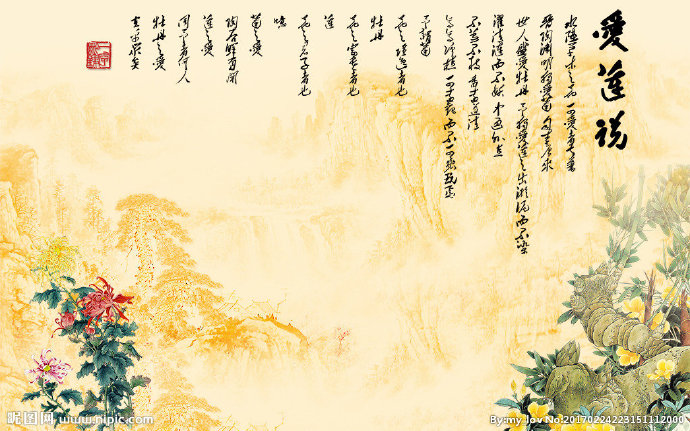 愛蓮說
水陸草木之花 可愛者甚蕃
晉陶淵明獨愛菊 自李唐來
世人盛愛牡丹 予獨愛蓮之出淤泥而不染
濯清漣而不妖 中通外直
不蔓不枝 香遠益清
亭亭淨植 可遠觀而不可褻玩焉
予謂菊
花之隱逸者也
牡丹
花之富貴者也
蓮
花之君子者也
噫
菊之愛
陶后鮮有聞
蓮之愛
同予者何人
牡丹之愛
宜乎眾矣
昵图网 www.nipic.com
By:my lov No.20170224223151112000